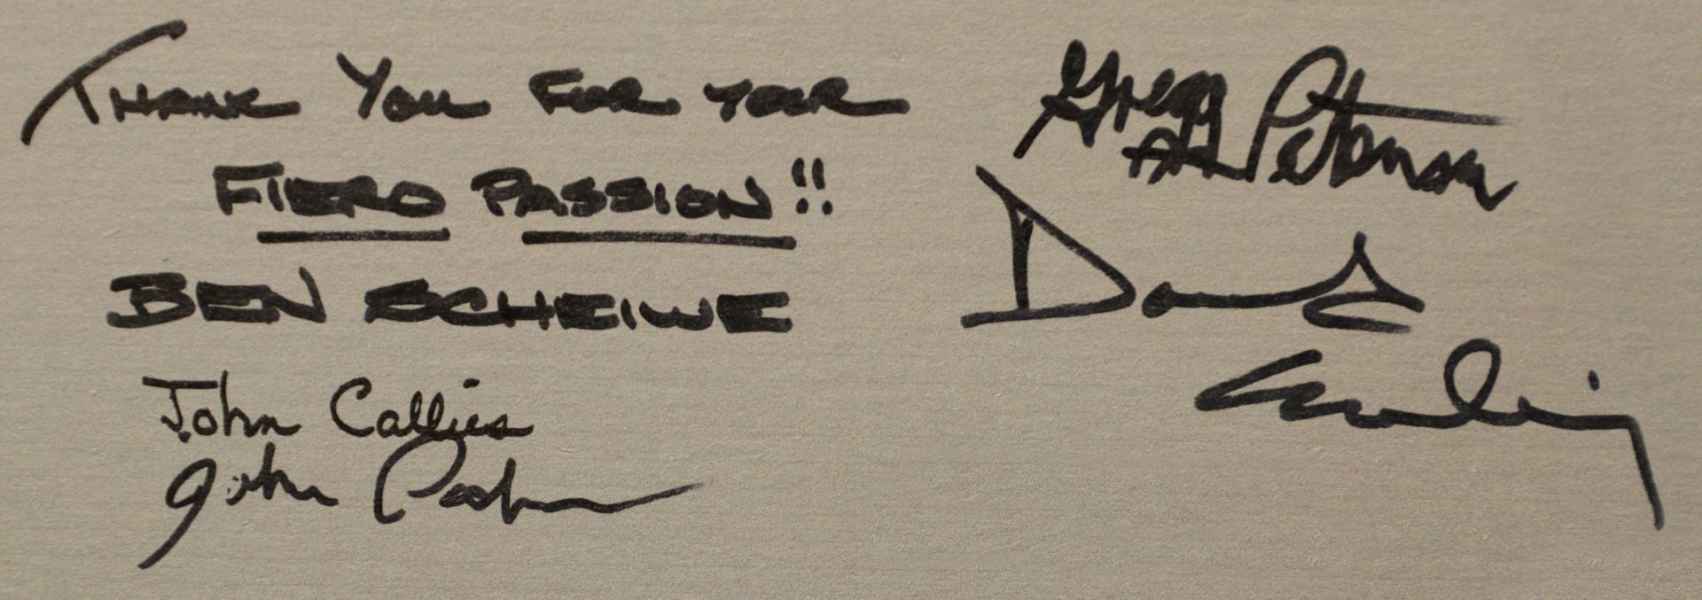 THANK YOU FOR YOUR
FIERO PASSION!!
BEN SCHEIWE
John Callies
John
Gregg Peterson
David